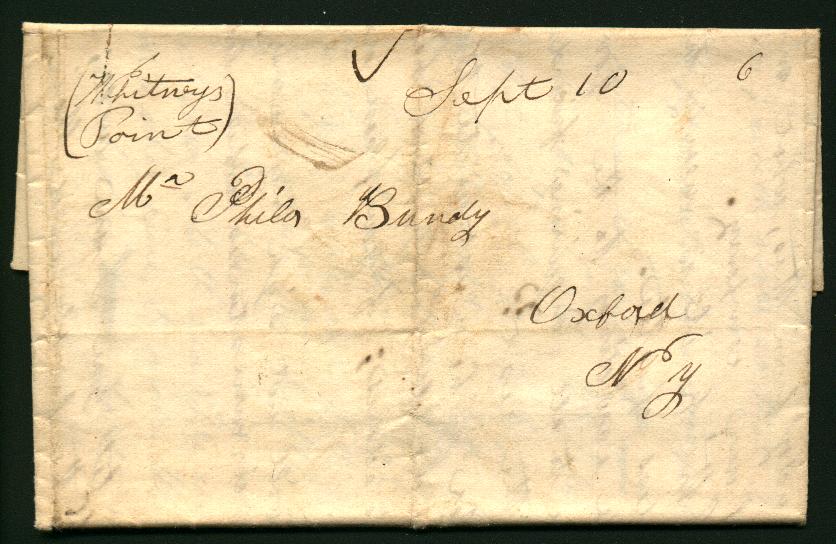 (Whitneys
Point)
Sept 10
6
Mr Philo Bundy
Oxford
N Y